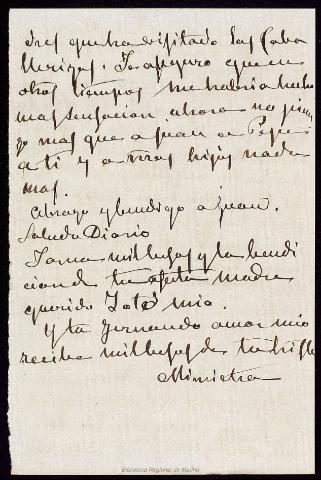 tres que ha visitado las Caba
llerizas. Te aseguro que en
otros tiempos me habria hecho
mas sensacion ahora no pien
so mas que a Juan a Pepe
a ti y a hijos nada
mas.
Abrazo y bendigo a Juan.
Saluda Diario
Toma mil besos y la bendi
cion de tu madre
querido Totó mio.
Y tu Fernando amor mio
recibe mil besos de tu triste
Mimietra
Biblioteca Regional de Madrid